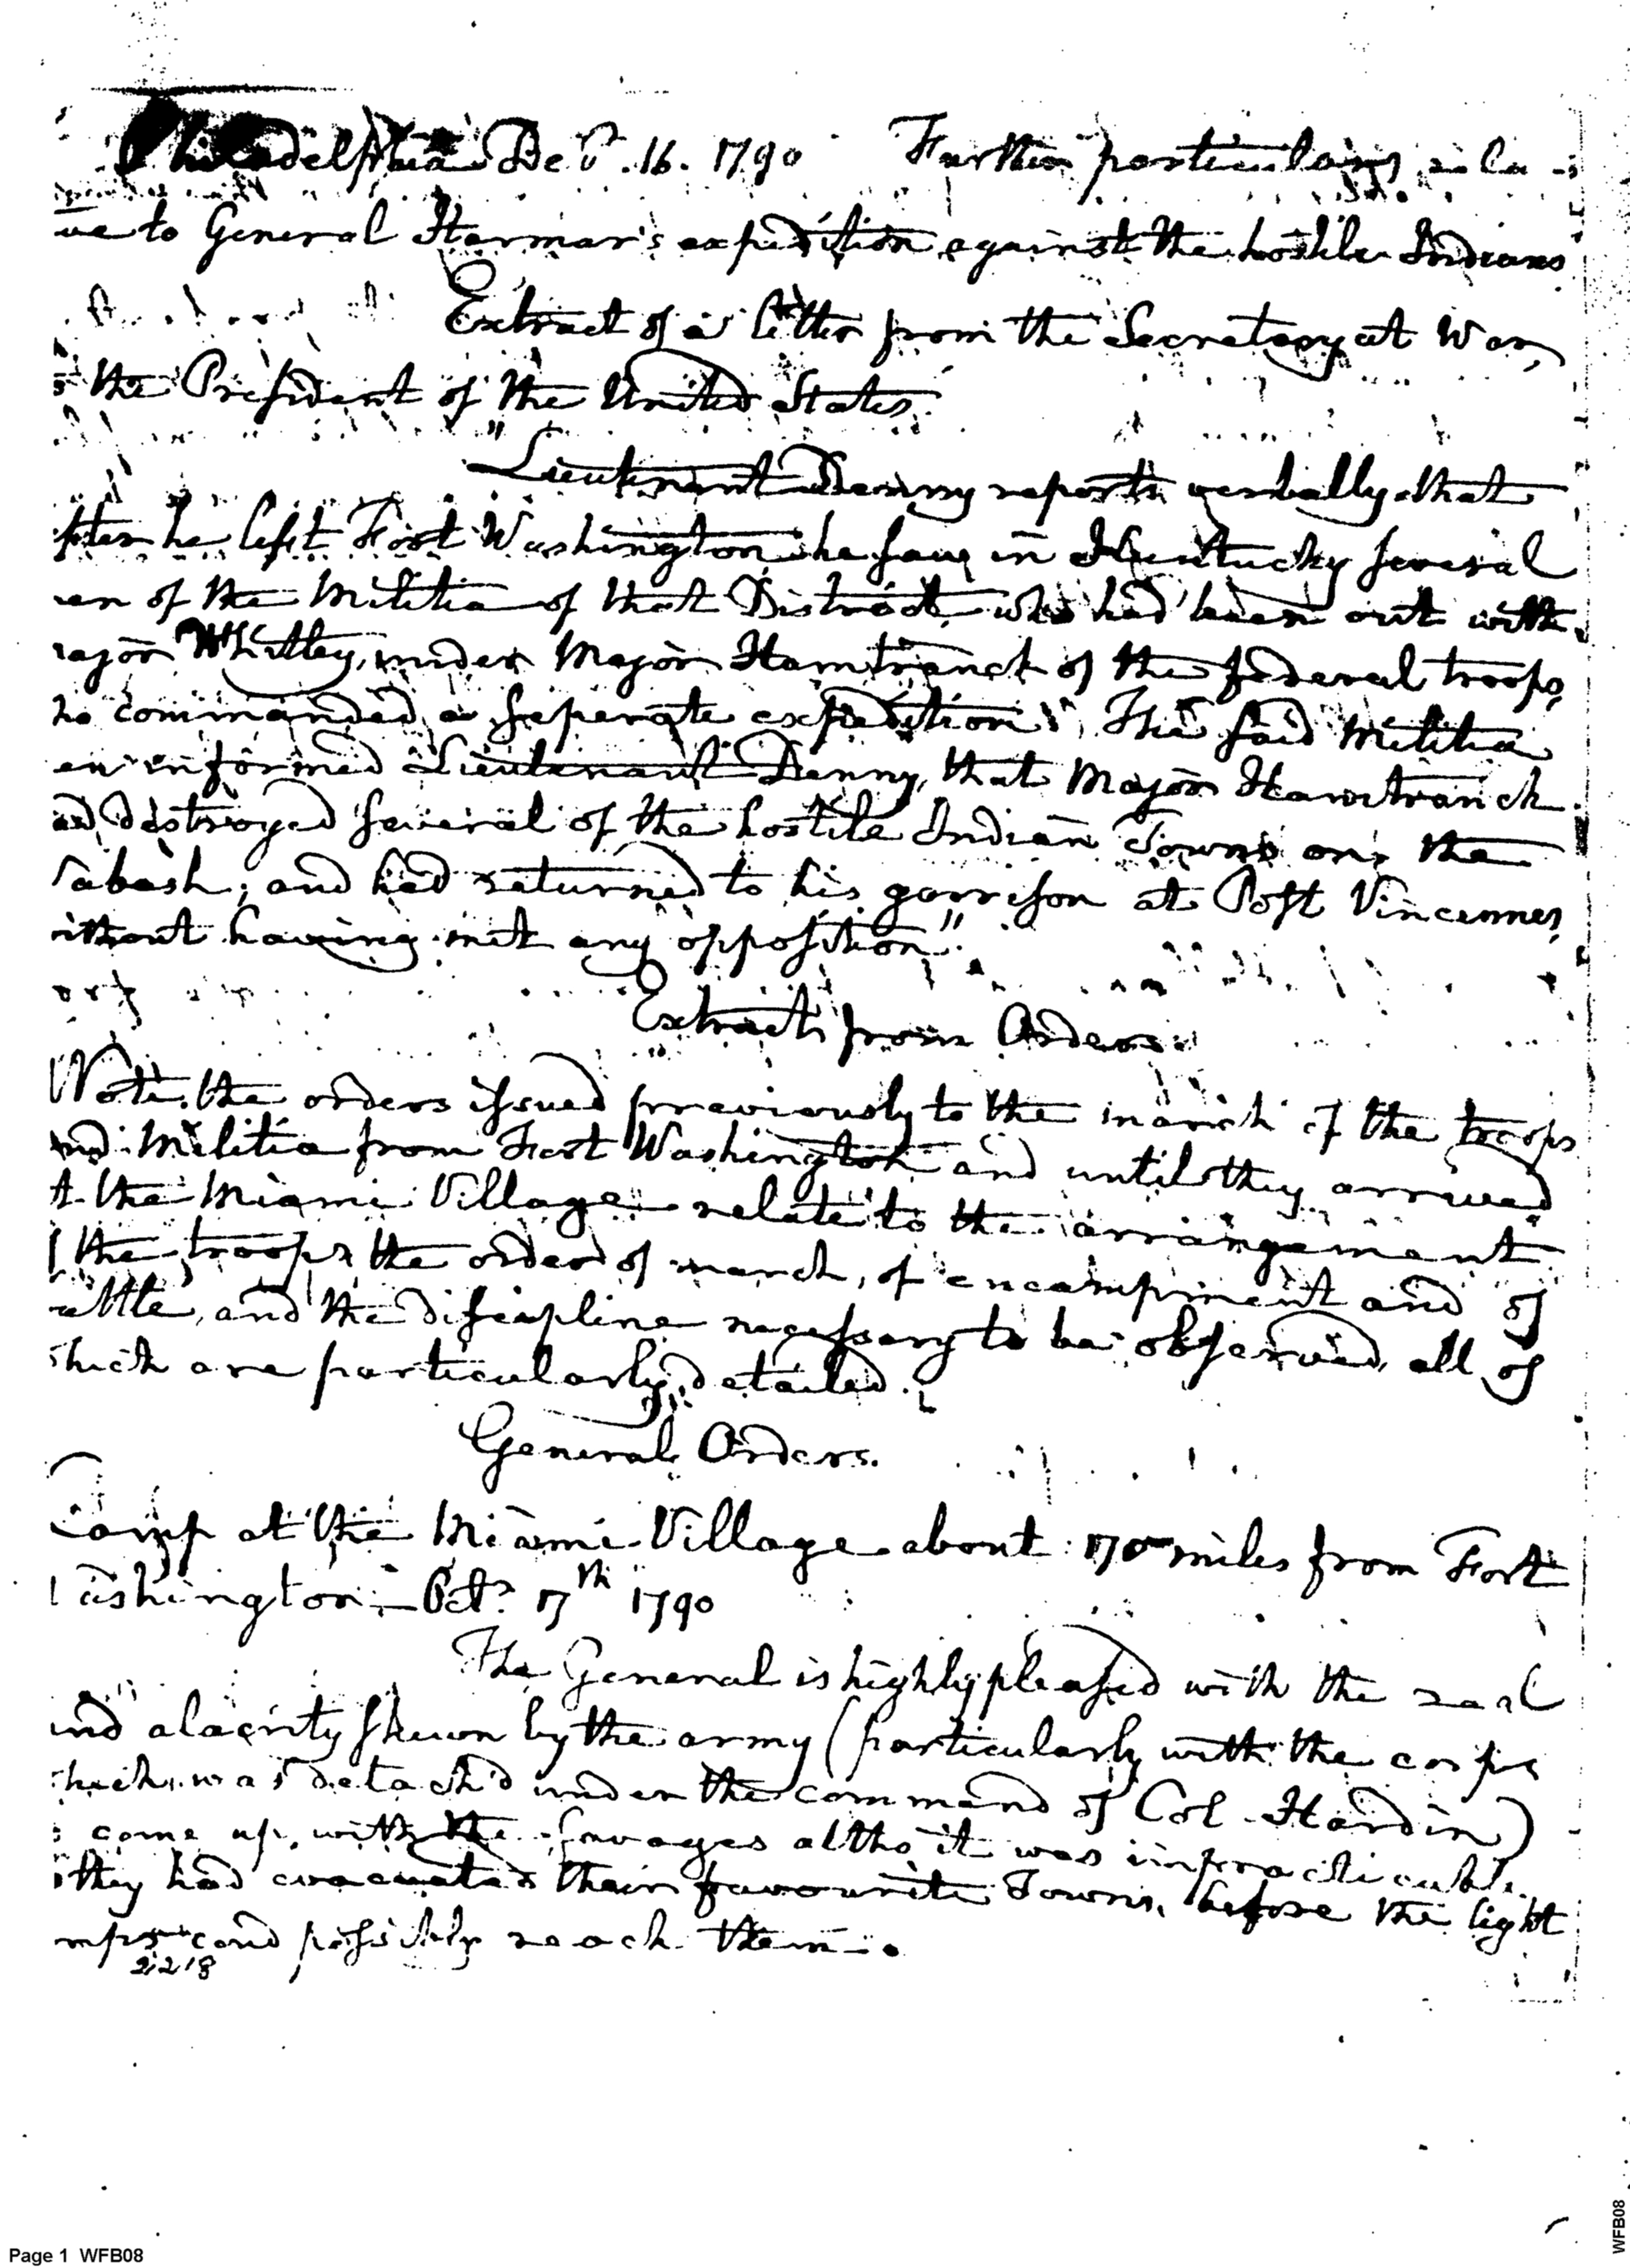 Philadelphia Dec. 16. 1790 Further particulars rela
ve to General Harmar's expedition against the hostile Indians
Extract of a letter from the Secretary at War,
the President of the United States.
"Lieutenant Denny reports verbally that
fter he left Fort Washington he saw in Kentucky several
en of the Militia of that District who had been out with
ajor Whitley, under Major Hamtranck of the federal troops,
ho commanded a seperate expedition. The said Militia
en informed Lieutenant Denny, that Major Hamtranck
ad destroyed several of the hostile Indian Towns on the
abash; and had returned to his garrison at Post Vincennes,
ithout having met any opposition".
Extracts from Orders
Note, the orders issued previously to the march of the troops
nd Militia from Fort Washington and until they arrived
t the Miami Village relate to the arrangement
f the troops the order of march, of encampment and of
attle, and the discipline necessary to be observed, all of
hich are particularly detailed.
General Orders.
Camp at the Miami Village about 170 miles from Fort
ashington - Oct.r 17th 1790
The General is highly pleased with the zeal
and alacrity shewn by the army (particularly with the corps
hich was detach'd under the command of Col Hardin)
come up with the savages altho it was impracticable
they had evacuated their favourite Towns, before the light
mps coud possibly reach them.
2218
Page 1 WFB08
WFB08